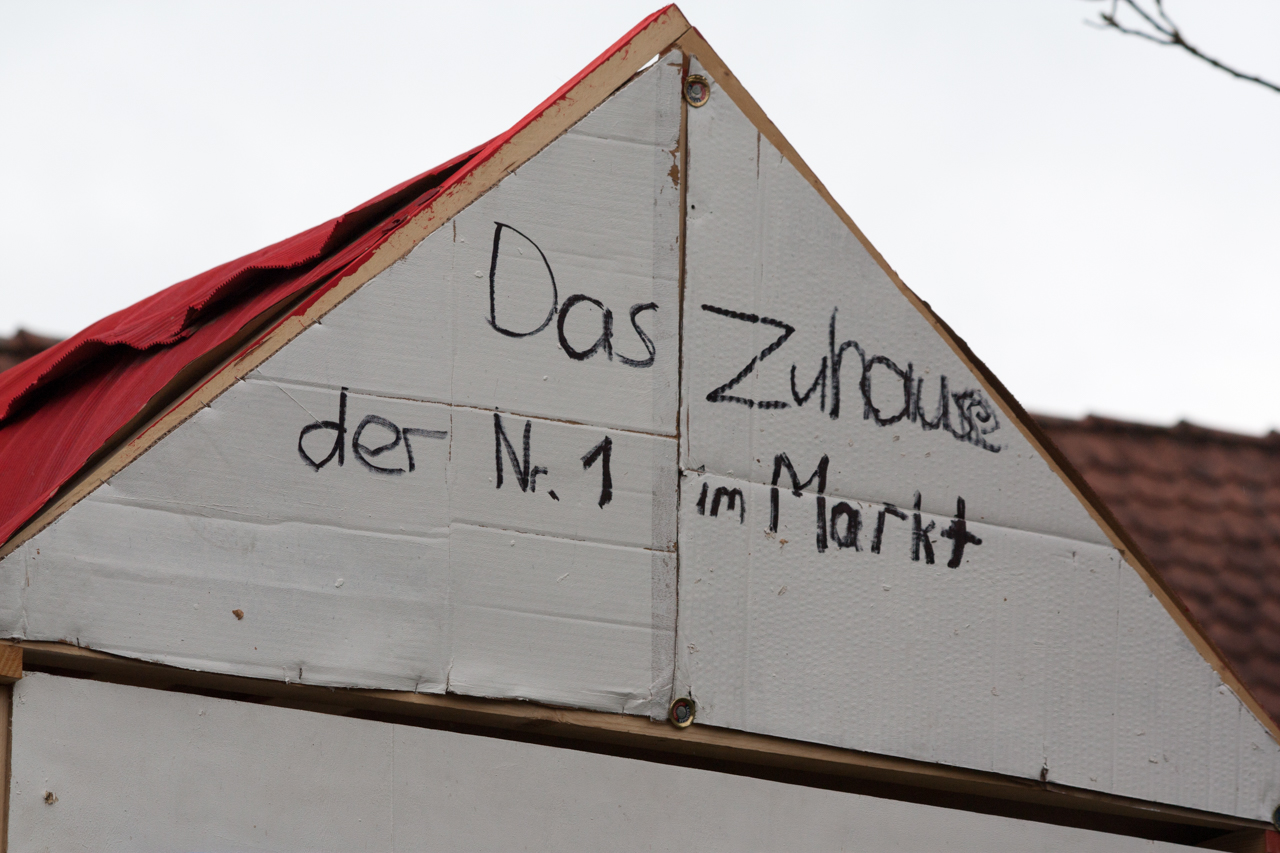 Das Zuhause
der Nr. 1 im Markt